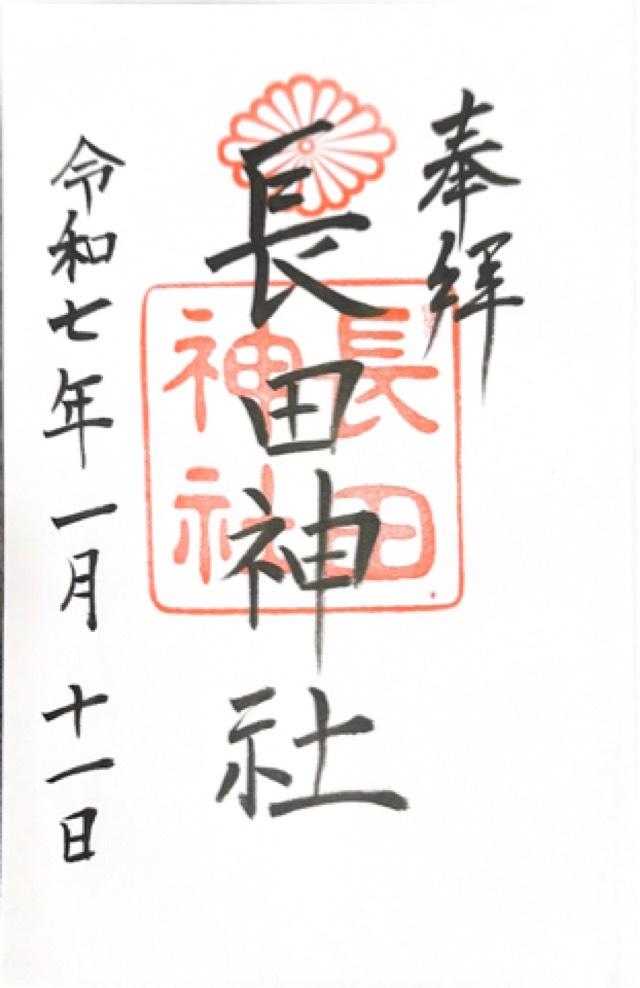 奉拝
長田神社
長田
神社
令和七年一月十一日